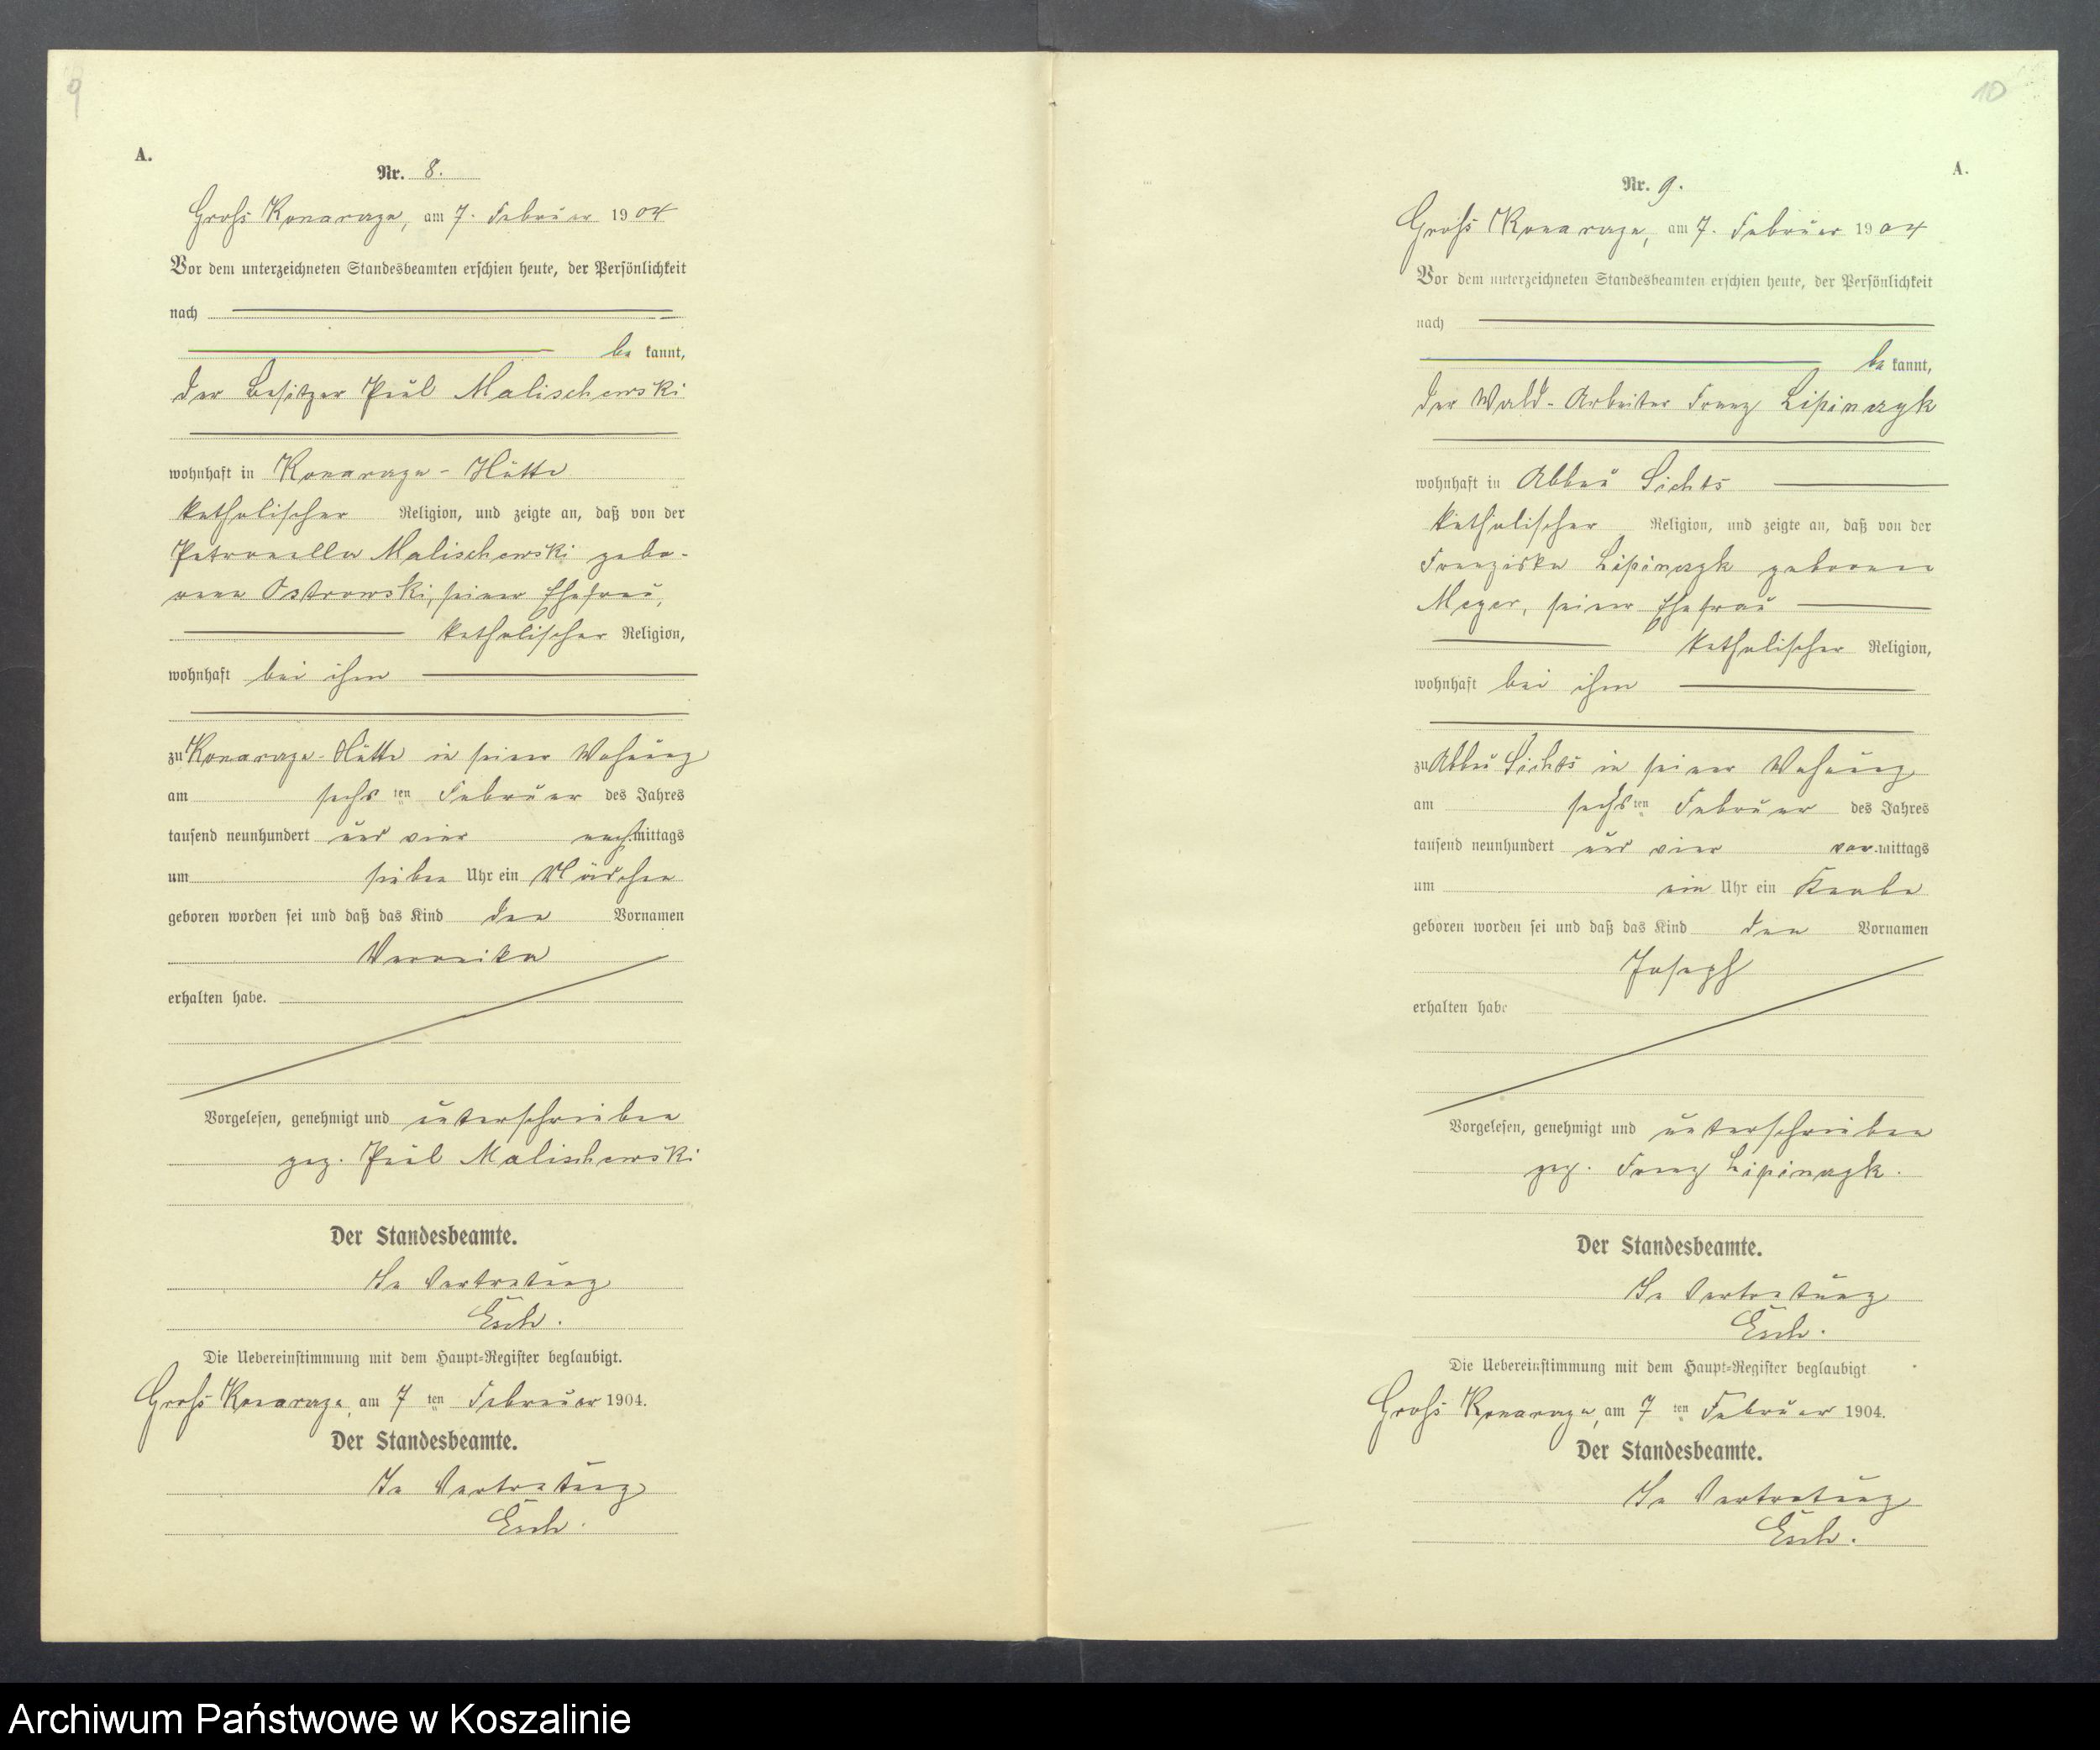 9
A.
Nr. 8.
Groß Konarczyn, am 7. Februar 1904
Vor dem unterzeichneten Standesbeamten erschien heute, der Persönlichkeit
nach
be kannt,
der Besitzer Paul Malischewski
wohnhaft in Konarczyn-Hütte
katholischer Religion, und zeigte an, daß von der
Petronella Malischewski gebo-
rene Ostrowski, seiner Ehefrau,
katholischer Religion,
wohnhaft bei ihm
zu Konarczyn-Hütte in seiner Wohnung
am sechs ten Februar des Jahres
tausend neunhundert und vier nachmittags
um sieben Uhr ein Mädchen
geboren worden sei und daß das Kind den Vornamen
Veronika
erhalten habe.
Vorgelesen, genehmigt und unterschrieben
gez. Paul Malischewski
Der Standesbeamte.
In Vertretung
Esch.
Die Uebereinstimmung mit dem Haupt=Register beglaubigt.
Groß Konarczyn, am 7 ten Februar 1904.
Der Standesbeamte.
In Vertretung
Esch.
10
A.
Nr. 9.
Groß Konarczyn, am 7. Februar 1904
Vor dem unterzeichneten Standesbeamten erschien heute, der Persönlichkeit
nach
be kannt,
der Wald-Arbeiter Franz Lipinczyk
wohnhaft in Abbau Lichts
katholischer Religion, und zeigte an, daß von der
Franziska Lipinczyk geborene
Meyer, seiner Ehefrau
katholischer Religion,
wohnhaft bei ihm
zu Abbau Lichts in seiner Wohnung
am sechs ten Februar des Jahres
tausend neunhundert und vier vormittags
um ein Uhr ein Knabe
geboren worden sei und daß das Kind den Vornamen
Joseph
erhalten habe
Vorgelesen, genehmigt und unterschrieben
gez. Franz Lipinczyk.
Der Standesbeamte.
In Vertretung
Esch.
Die Uebereinstimmung mit dem Haupt=Register beglaubigt
Groß Konarczyn, am 7 ten Februar 1904.
Der Standesbeamte.
In Vertretung
Esch.
Archiwum Państwowe w Koszalinie